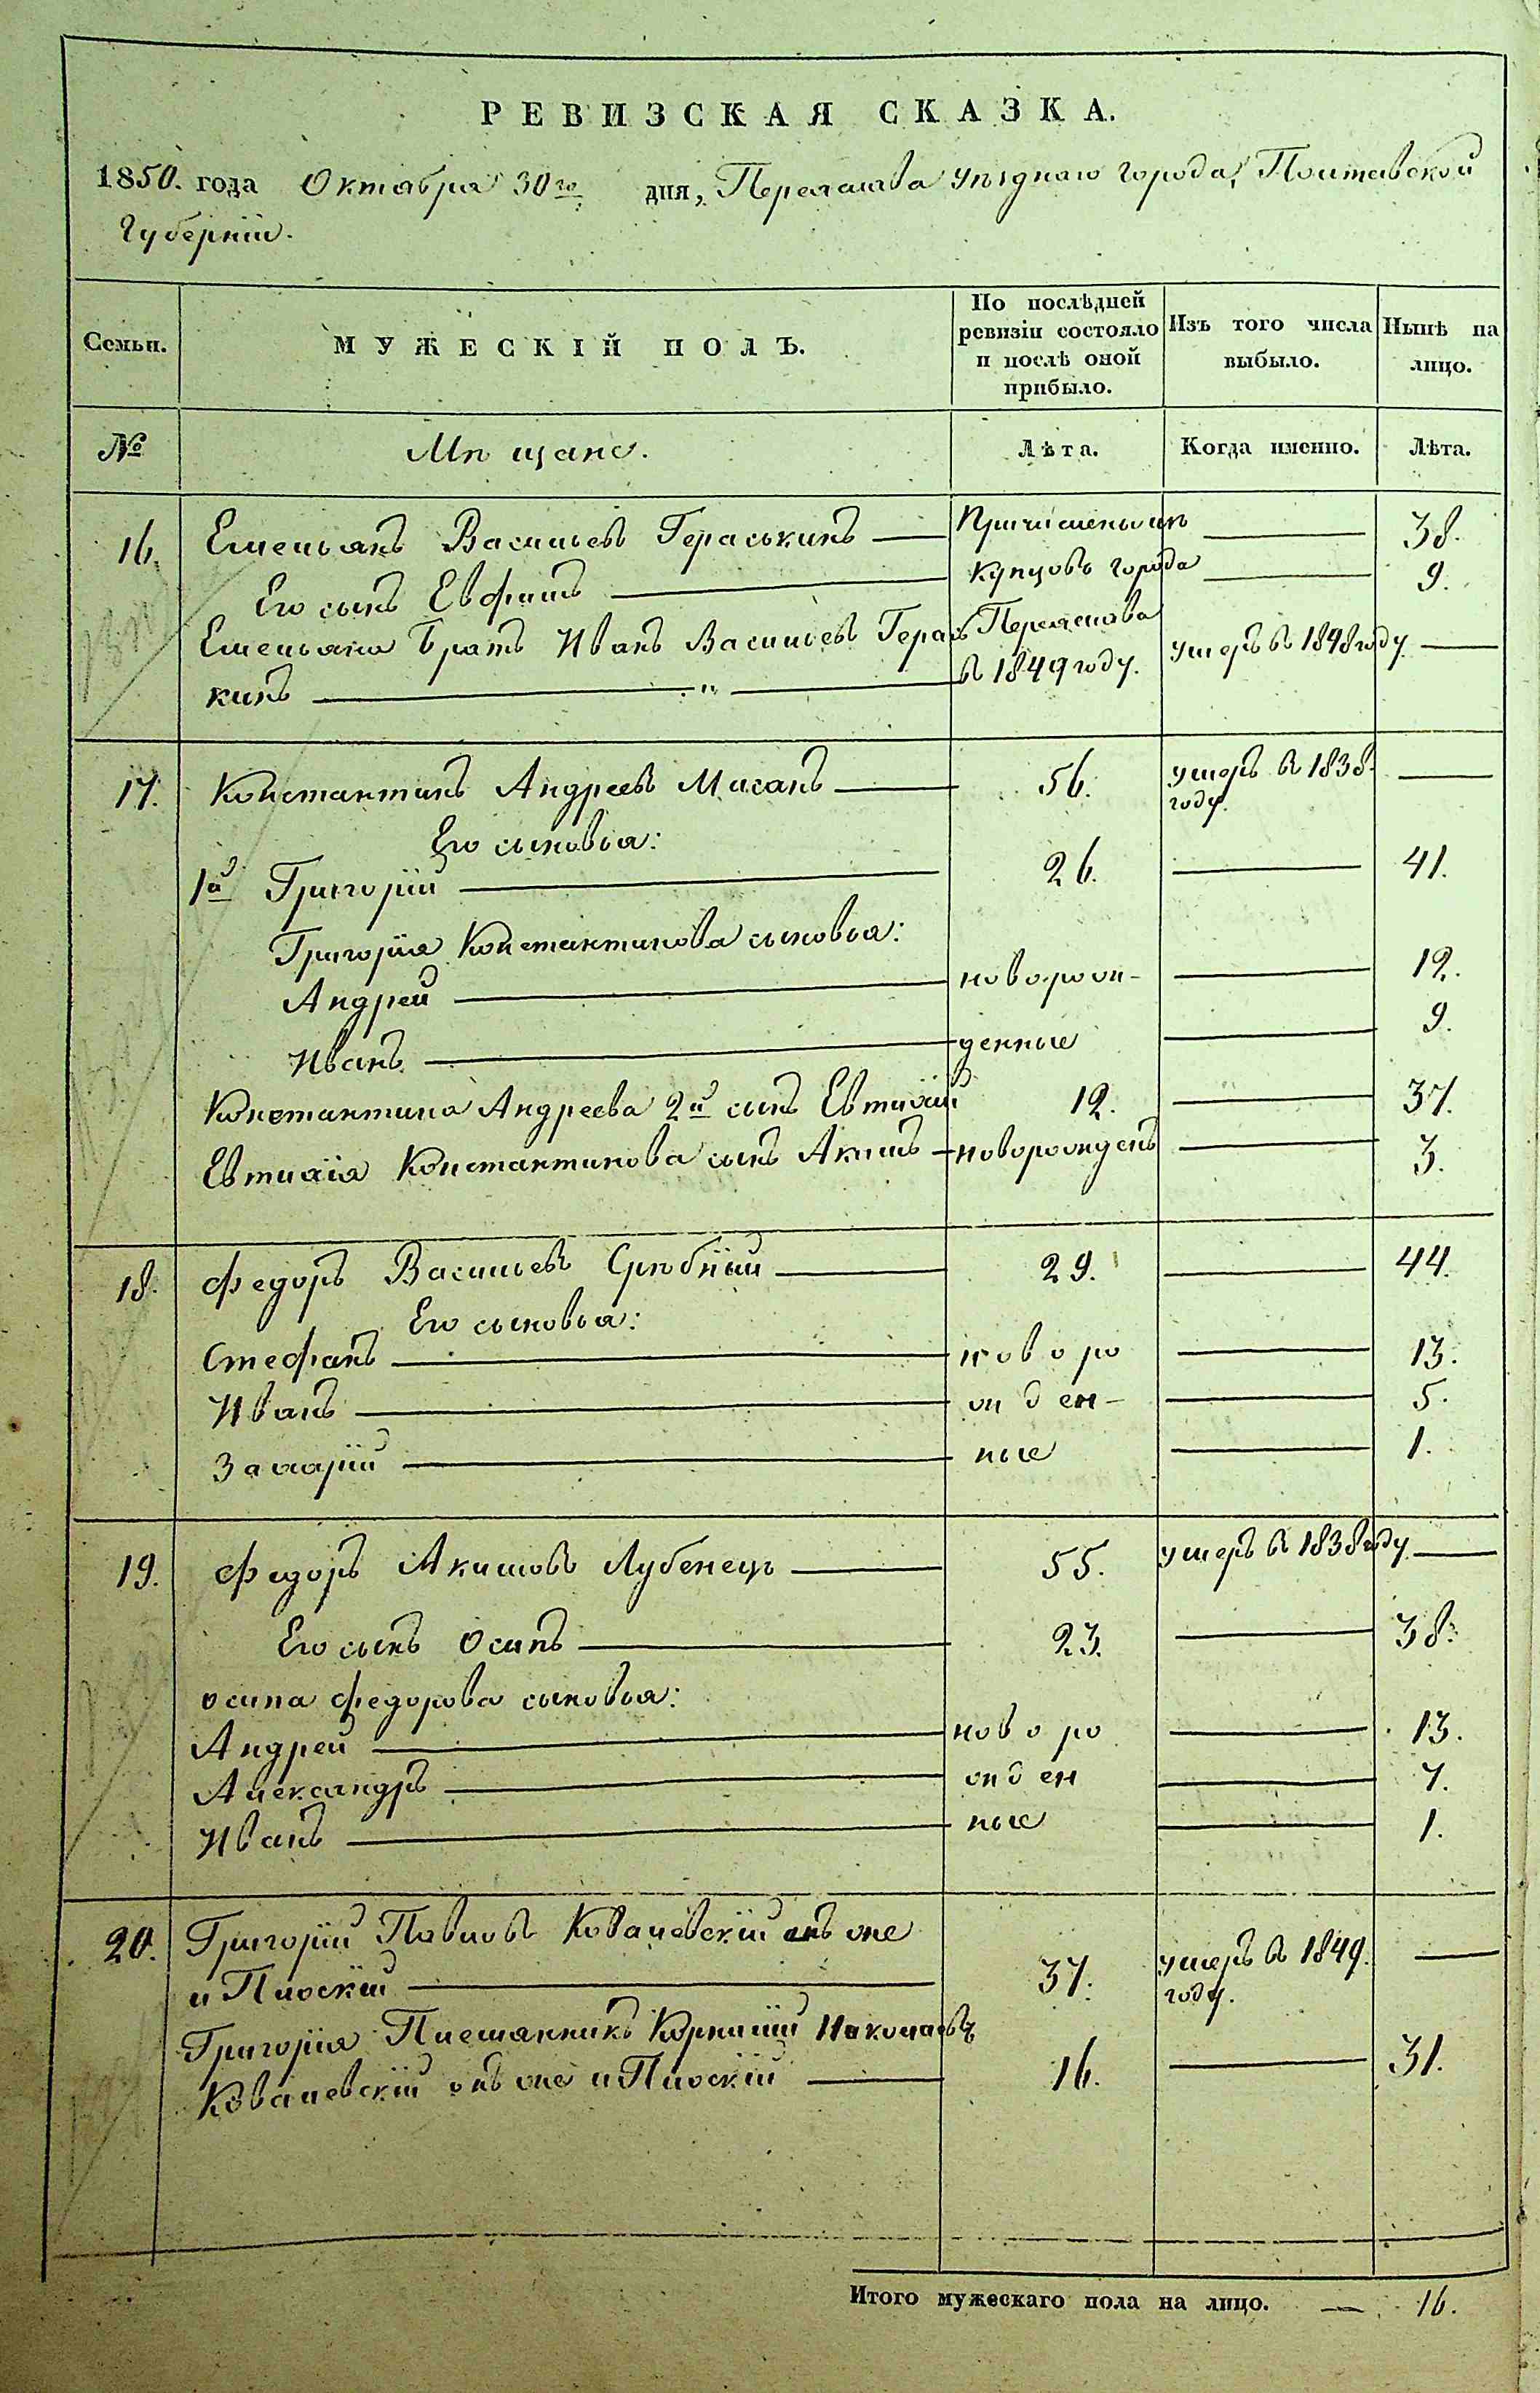 РЕВИЗСКАЯ СКАЗКА.
1850. года Октября 30го дня, Переяслава уѣзднаго города, Полтавской
Губерніи.
Семьи.
МУЖЕСКІЙ ПОЛЪ.
По послѣдней
ревизіи состояло
и послѣ оной
прибыло.
Изъ того числа
выбыло.
Нынѣ на
лицо.
№
Мѣщане.
Лѣта.
Когда именно.
Лѣта.
16. Емельянъ Васильевъ Гераськинъ — Причислены изъ — 38.
Его сынъ Евфимъ — Купцовъ города — 9.
Емельяна братъ Иванъ Васильевъ Герась Переяслава умеръ въ 1848 году —
кинъ — " — въ 1849 году.
17. Константинъ Андреевъ Мисанъ — 56. умеръ въ 1838. —
году.
Его сыновья:
1й Григорій — 26. — 41.
Григорія Константинова сыновья:
Андрей — новорож- — 12.
Иванъ — денные — 9.
Константина Андреева 2й сынъ Евтихій 12. — 37.
Евтихія Константинова сынъ Акимъ — новорожденъ — 3.
18. Федоръ Васильевъ Срѣбный — 29. — 44.
Его сыновья:
Стефанъ — новоро — 13.
Иванъ — жден- — 5.
Захарій — ные — 1.
19. Федоръ Акимовъ Лубенецъ — 55. умеръ въ 1838 году —
Его сынъ Осипъ — 23. — 38.
Осипа Федорова сыновья:
Андрей — новоро — 13.
Александръ — жден — 7.
Иванъ — ные — 1.
20. Григорій Павловъ Ковалевскій онъ же
и Плоскій — 37. умеръ въ 1849. —
году.
Григорія Племянникъ Корнилій Николаевъ
Ковалевскій онъ же и Плоскій — 16. — 31.
Итого мужескаго пола на лицо. — 16.